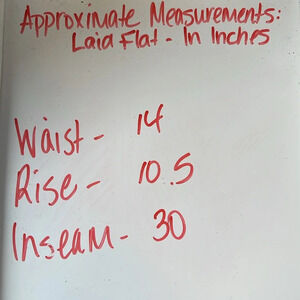 Approximate Measurements:
Laid Flat - In Inches
Waist - 14
Rise - 10.5
Inseam - 30